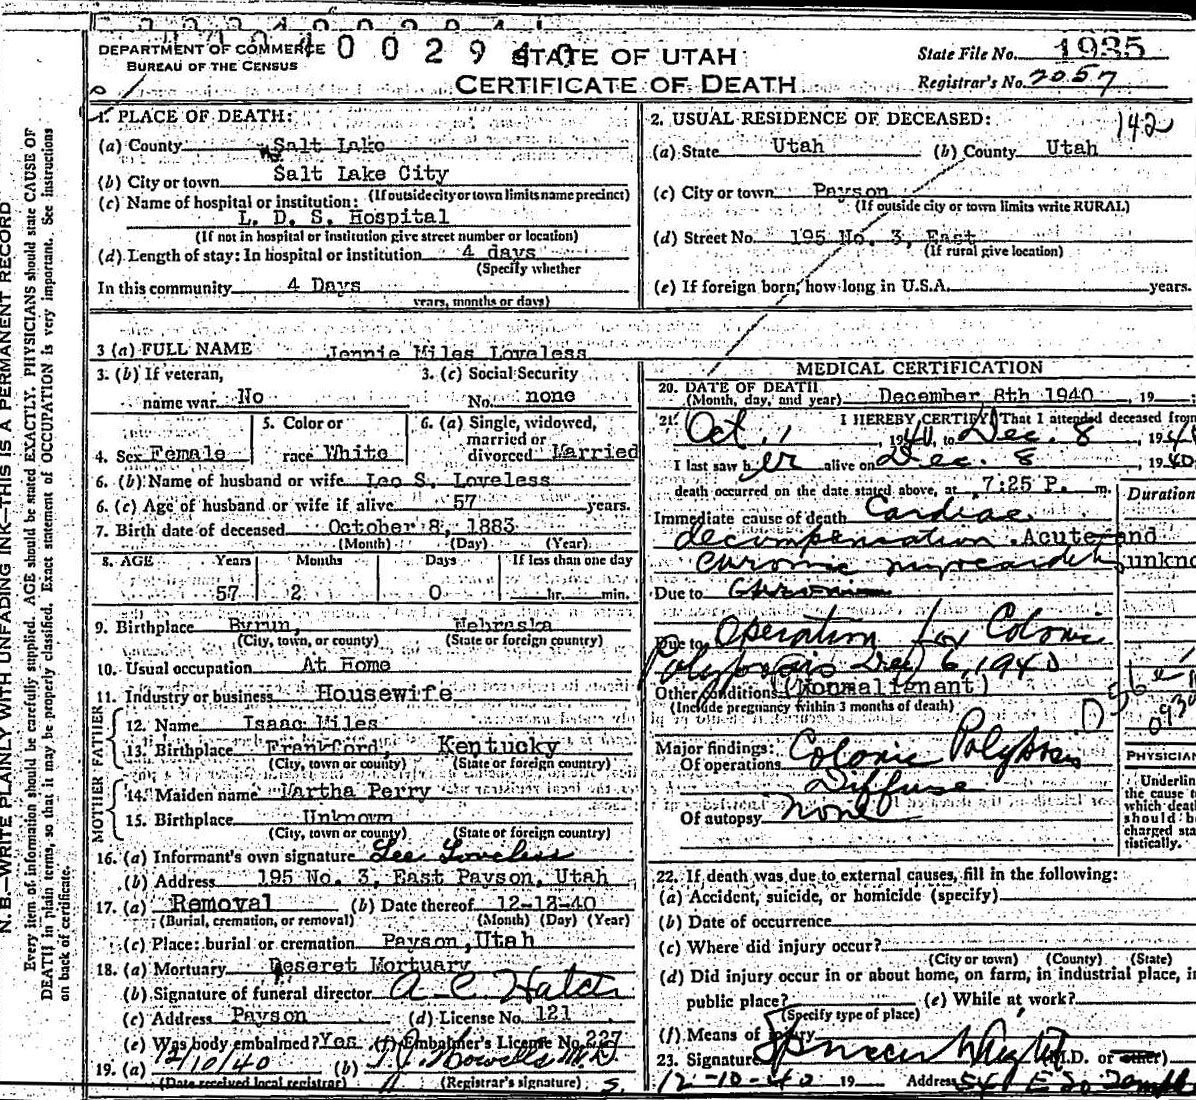 DEPARTMENT OF COMMERCE
BUREAU OF THE CENSUS
STATE OF UTAH
CERTIFICATE OF DEATH
State File No. 1935
Registrar's No. 2057
1. PLACE OF DEATH:
(a) County Salt Lake
(b) City or town Salt Lake City
(If outside city or town limits name precinct)
(c) Name of hospital or institution:
L. D. S. Hospital
(If not in hospital or institution give street number or location)
(d) Length of stay: In hospital or institution 4 days
(Specify whether
In this community 4 Days
years, months or days)
2. USUAL RESIDENCE OF DECEASED:
142
(a) State Utah (b) County Utah
(c) City or town Payson
(If outside city or town limits write RURAL)
(d) Street No. 195 No. 3, East
(If rural give location)
(e) If foreign born, how long in U.S.A. years.
3 (a) FULL NAME Jennie Miles Loveless
3. (b) If veteran,
name war No
3. (c) Social Security
No. none
4. Sex Female
5. Color or
race White
6. (a) Single, widowed,
married or
divorced Married
6. (b) Name of husband or wife Leo S. Loveless
6. (c) Age of husband or wife if alive 57 years.
7. Birth date of deceased October 8, 1883
(Month) (Day) (Year)
8. AGE Years Months Days If less than one day
57 2 0 hr. min.
9. Birthplace Byrun, Nebraska
(City, town, or county) (State or foreign country)
10. Usual occupation At Home
11. Industry or business Housewife
FATHER
12. Name Isaac Miles
13. Birthplace Frankford, Kentucky
(City, town, or county) (State or foreign country)
MOTHER
14. Maiden name Martha Perry
15. Birthplace Unknown
(City, town or county) (State or foreign country)
16. (a) Informant's own signature Lee Loveless
(b) Address 195 No. 3, East Payson, Utah
17. (a) Removal (b) Date thereof 12-12-40
(Burial, cremation, or removal) (Month) (Day) (Year)
(c) Place: burial or cremation Payson, Utah
18. (a) Mortuary Deseret Mortuary
(b) Signature of funeral director A. C. Hatch
(c) Address Payson (d) License No. 121
(e) Was body embalmed? Yes (f) Embalmer's License No. 227
19. (a) 12/10/40 (b) T. J. Howells M.D.
(Date received local registrar) (Registrar's signature) S.
MEDICAL CERTIFICATION
20. DATE OF DEATH
(Month, day, and year) December 8th 1940, 19
21. I HEREBY CERTIFY That I attended deceased from
Oct. 1, 1940, to Dec. 8, 1940
I last saw her alive on Dec. 8, 1940.
death occurred on the date stated above, at 7:25 P. m.
Duration
Immediate cause of death Cardiac
decompensation. Acute and
chronic myocarditis unkno
Due to Chronic
Due to Operation for Colonic
Polyposis Dec 6, 1940
Other conditions (Nonmalignant)
(Include pregnancy within 3 months of death)
Major findings:
Of operations Colonic Polyposis
Diffuse
Of autopsy None
PHYSICIAN
Underlin
the cause t
which deat
should be
charged sta
tistically.
22. If death was due to external causes, fill in the following:
(a) Accident, suicide, or homicide (specify)
(b) Date of occurrence
(c) Where did injury occur?
(City or town) (County) (State)
(d) Did injury occur in or about home, on farm, in industrial place, in
public place? (e) While at work?
(Specify type of place)
(f) Means of injury
23. Signature Spencer Wright (M.D. or other)
12-10-40 19 Address 541 E So Temple
N. B.—WRITE PLAINLY WITH UNFADING INK—THIS IS A PERMANENT RECORD
Every item of information should be carefully supplied. AGE should be stated EXACTLY. PHYSICIANS should state CAUSE OF
DEATH in plain terms, so that it may be properly classified. Exact statement of OCCUPATION is very important. See instructions
on back of certificate.